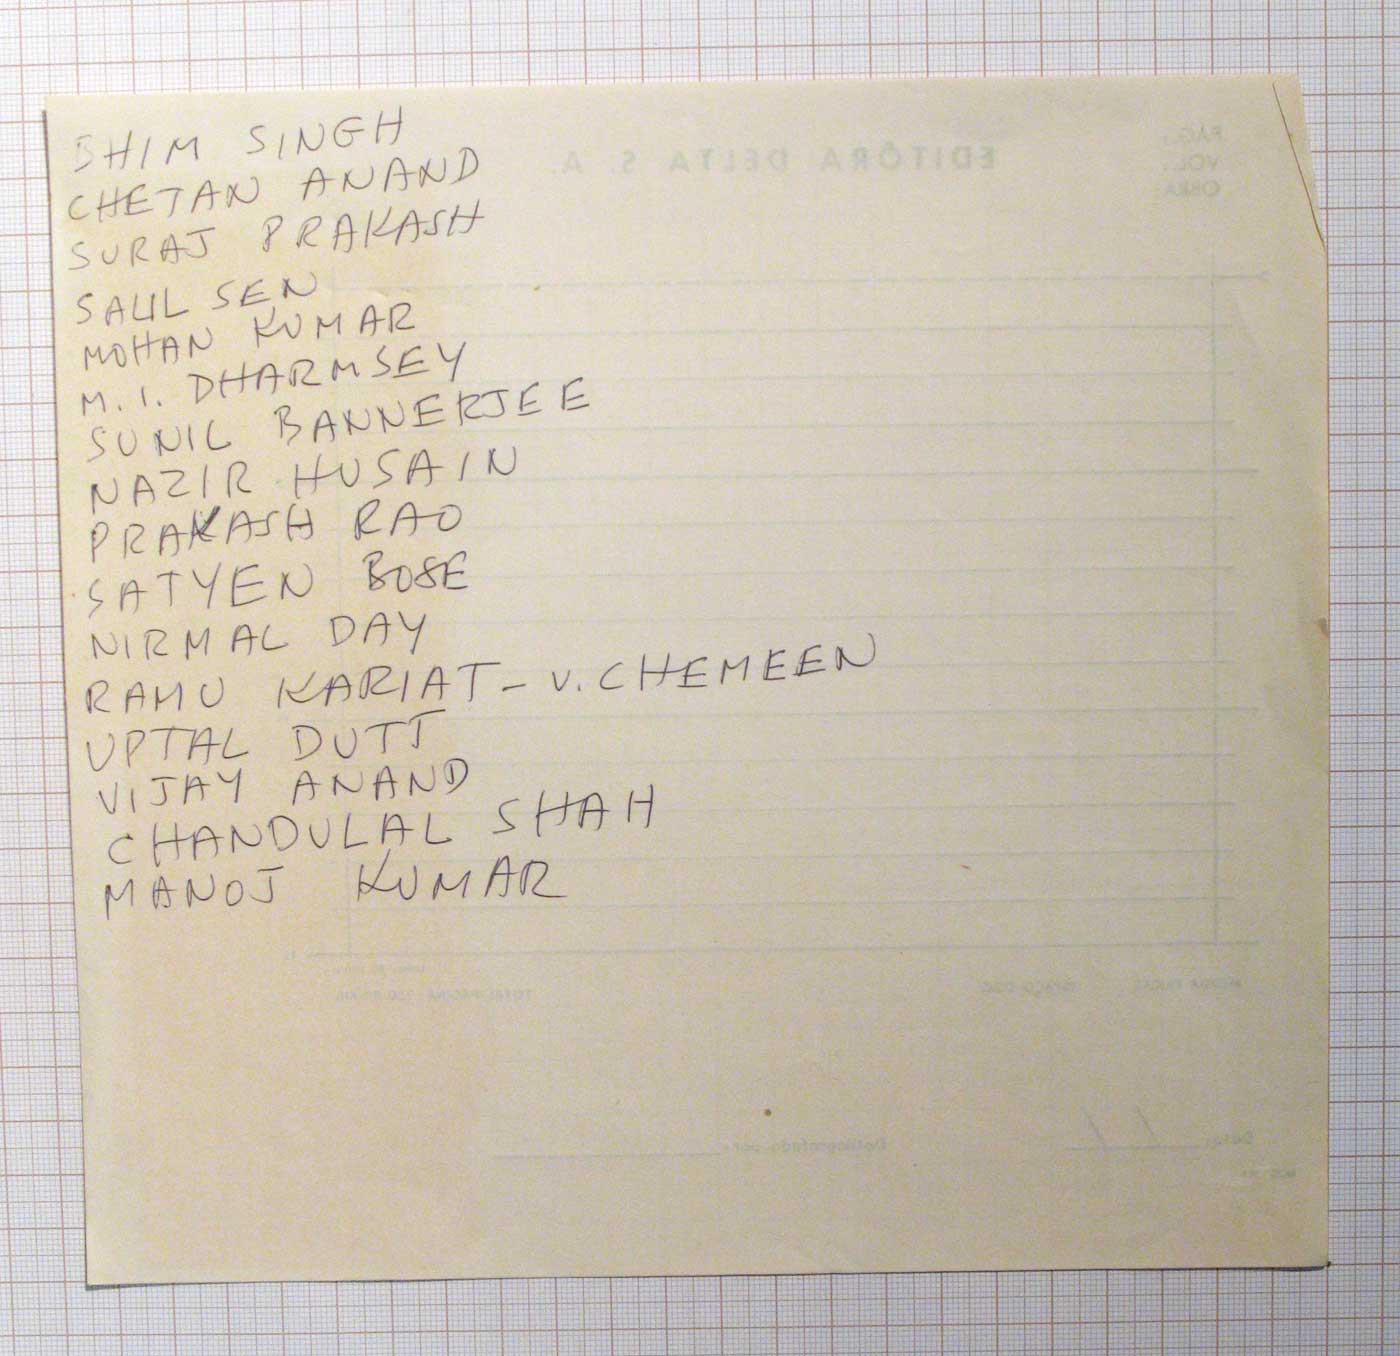 BHIM SINGH
CHETAN ANAND
SURAJ PRAKASH
SALIL SEN
MOHAN KUMAR
M. I. DHARMSEY
SUNIL BANNERJEE
NAZIR HUSAIN
PRAKASH RAO
SATYEN BOSE
NIRMAL DAY
RAMU KARIAT - V. CHEMEEN
UPTAL DUTT
VIJAY ANAND
CHANDULAL SHAH
MANOJ KUMAR
PÁG.:
VOL.:
OBRA:
EDITÔRA DELTA S. A.
Datilografado por:
Data: / /